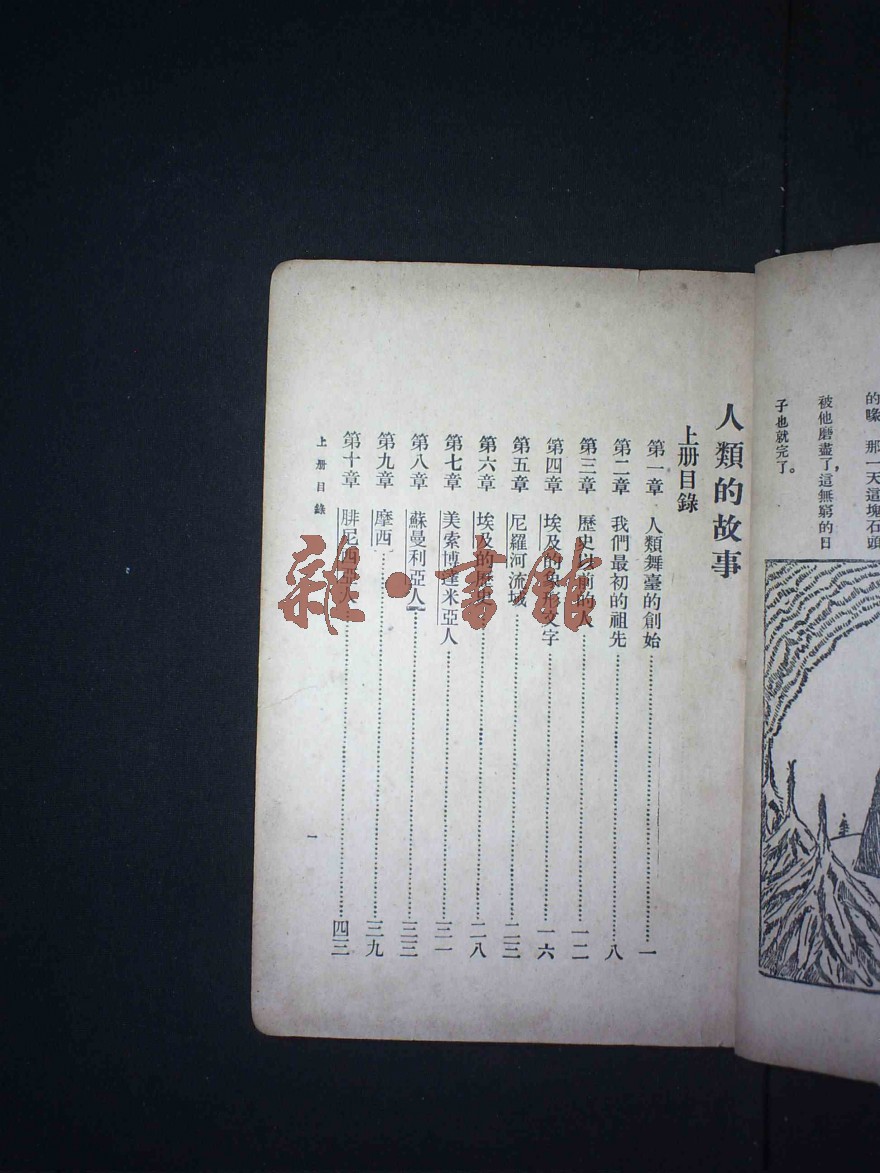 的喙 那一天這塊石頭
被他磨盡了，這無窮的日
子也就完了。
人類的故事
上册目錄
第一章 人類舞臺的創始……一
第二章 我們最初的祖先……八
第三章 歷史以前的人……一二
第四章 埃及的象形文字……一六
第五章 尼羅河流域……二三
第六章 埃及的歷史……二八
第七章 美索博達米亞人……三一
第八章 蘇曼利亞人……三三
第九章 摩西……三九
第十章 腓尼西亞人……四三
上册目錄
一
雜·書館